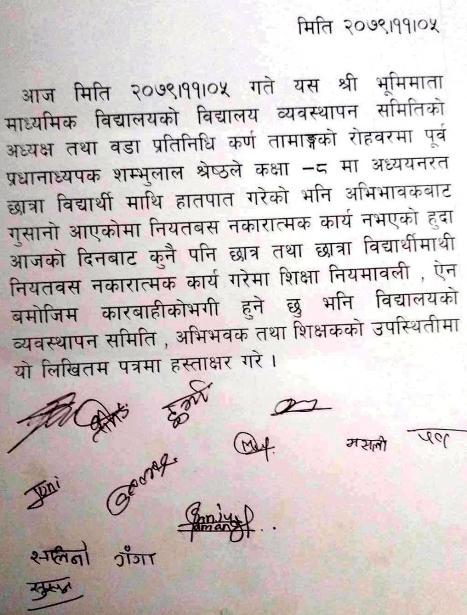 मिति २०७९।११।०५
आज मिति २०७९।११।०५ गते यस श्री भूमिमाता
माध्यमिक विद्यालयको विद्यालय व्यवस्थापन समितिको
अध्यक्ष तथा वडा प्रतिनिधि कर्ण तामाङ्गको रोहवरमा पूर्व
प्रधानाध्यपक शम्भुलाल श्रेष्ठले कक्षा –८ मा अध्ययनरत
छात्रा विद्यार्थी माथि हातपात गरेको भनि अभिभावकबाट
गुसानो आएकोमा नियतबस नकारात्मक कार्य नभएको हुदा
आजको दिनबाट कुनै पनि छात्र तथा छात्रा विद्यार्थीमाथी
नियतवस नकारात्मक कार्य गरेमा शिक्षा नियमावली , ऐन
बमोजिम कारबाहीकोभगी हुने छु भनि विद्यालयको
व्यवस्थापन समिति , अभिभवक तथा शिक्षकको उपस्थितीमा
यो लिखितम पत्रमा हस्ताक्षर गरे ।
मसली
Joni
गँगा